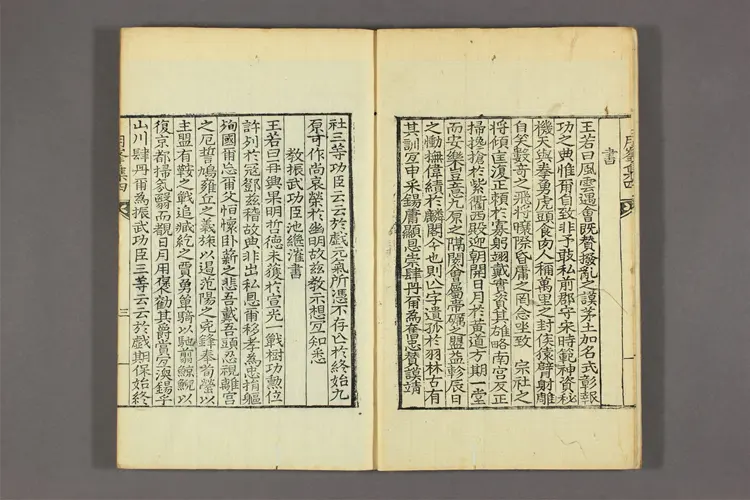 書
王若曰風雲遇會旣贊撥亂之謨茅土加名式彰報
功之典惟爾自致非予敢私前郡守宋時範神資秘
機天與拳勇虎頭食肉人稱萬里之封侯猿臂射雕
自笑數奇之飛將曝際昏庸之罔念坐致 宗社之
將傾匡復正賴於寡躬翊戴實資其雄略南宮反正
掃攙搶於紫衛西殿迎朝開日月於黃道方期一堂
而安樂豈意九原之隔閡會屬帶礪之盟益軫辰日
之慟撫偉績於麟閣今也則亡字遺孤於羽林古有
其訓冥申釆錫庸顯恩崇肆丹爾爲奮忠贊謨靖
社三等功臣云云於戲元氣所憑不存亡於終始九
原可作尚哀榮於幽明故玆敎示想宜知悉
敎振武功臣池繼漼書
王若曰再興果明哲德未獲於宣光一戰樹功勲位
許列於冠鄧玆稽故典非出私恩爾移孝爲忠捐軀
殉國爾忘爾父怛懷臥薪之悲吾戴吾頭忍視離宮
之厄誓鳩雍丘之義旅以遏范陽之兇鋒奉荀罃以
主盟有鞍之戰追臧紇之賈勇單騎以馳翦鯨鯢以
復京都掃氛翳而觀日月用褒忠勸其爵賞宜渙錫乎
山川肆丹爾爲振武功臣三等云云於戲期保始終
集四
三